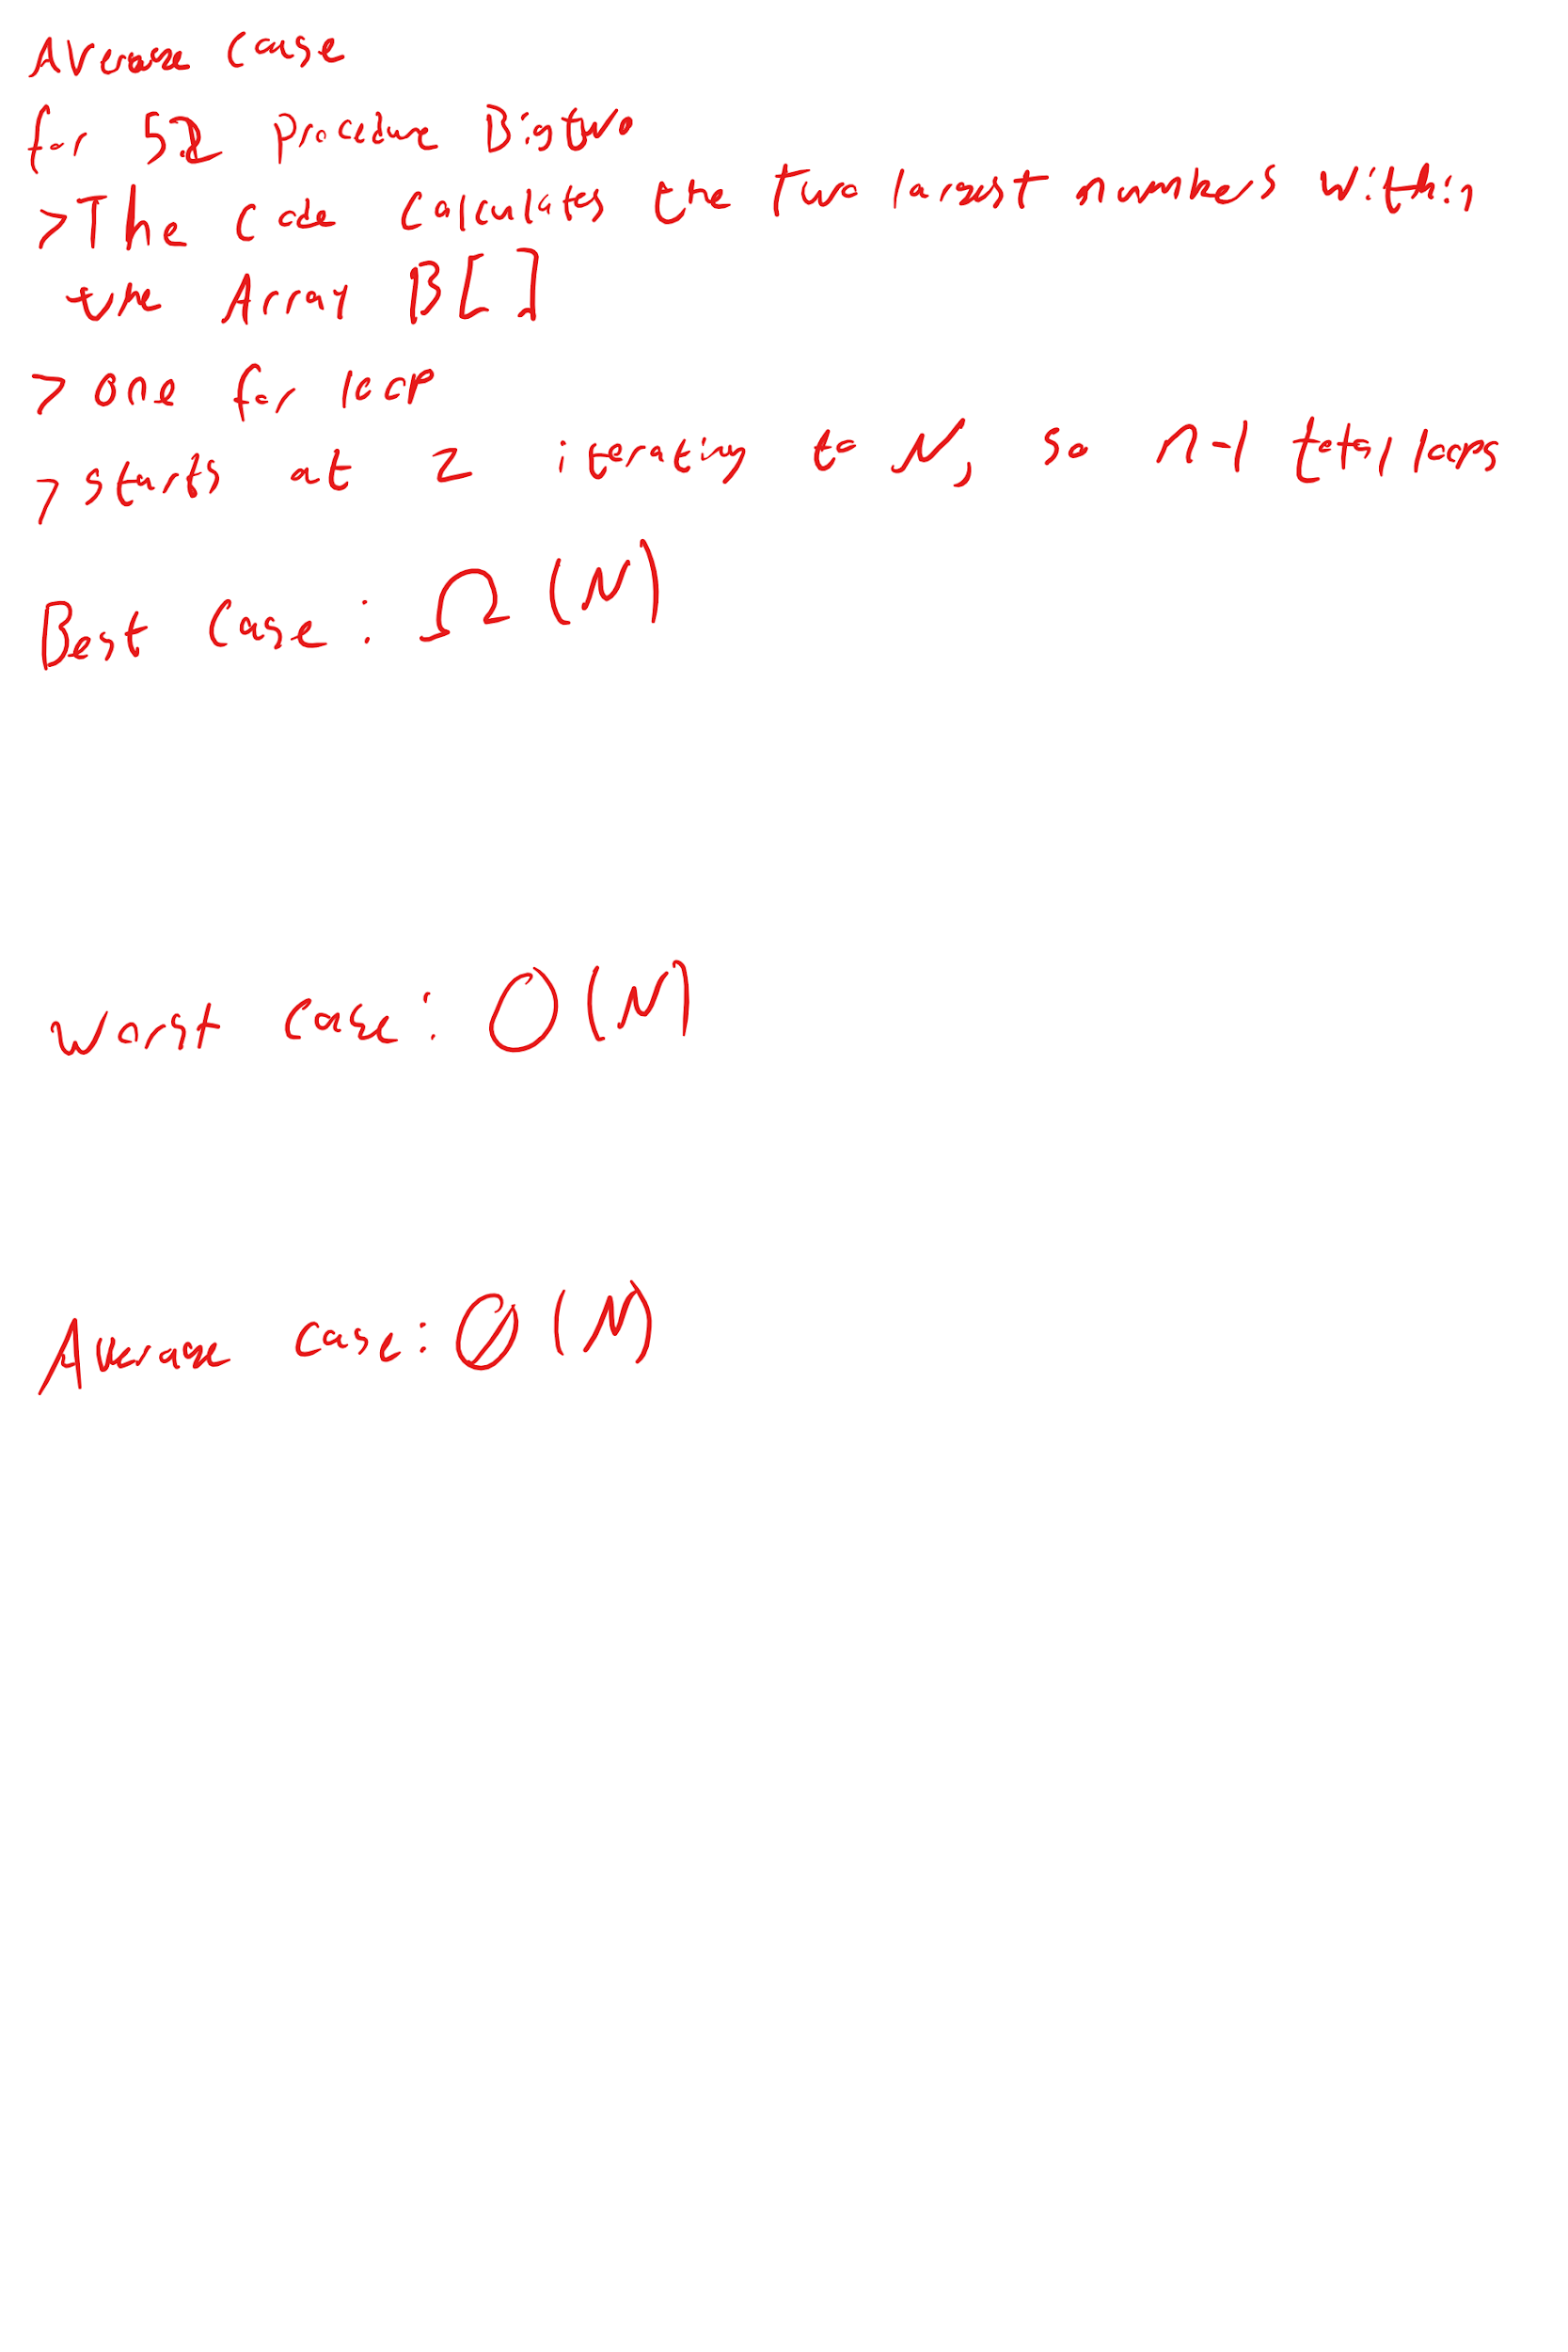 Average Case
for 5.2 Procedure Bigtwo
>The code calculates the two largest numbers within
the Array B[ ]
> one for loop
> starts at 2 iterating to N, so n-1 total loops
Best Case: Ω(N)
Worst Case: O(N)
Average case: Θ(N)